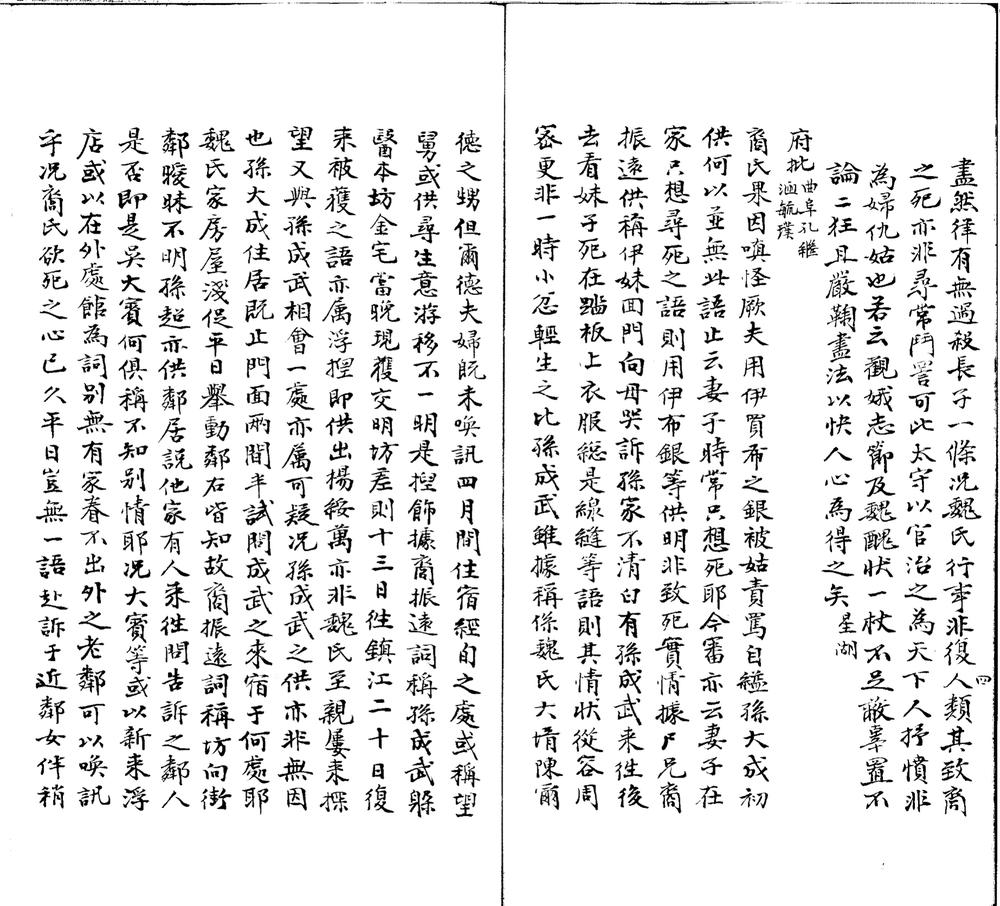 盡然律有無過殺長子一條况魏氏行事非復人類其致裔
之死亦非尋常鬥詈可比太守以官治之為天下人抒憤非
為婦仇姑也若云觀娥志節及魏醜狀一杖不足蔽辜置不
論二狂且嚴鞫盡法以快人心為得之矣 星湖
府批 曲阜孔繼涵毓璞
裔氏果因嗔怪厥夫用伊買布之銀被姑責罵自縊孫大成初
供何以並無此語止云妻子時常只想死耶今審亦云妻子在
家只想尋死之語則用伊布銀等供明非致死實情據尸兄裔
振遠供稱伊妹回門向母哭訴孫家不清白有孫成武来往後
去看妹子死在踏板上衣服縂是線縫等語則其情狀從容周
宻更非一時小忿輕生之比孫成武雖據稱係魏氏大壻陳爾
四
德之甥但爾德夫婦旣未喚訊四月間住宿經旬之處或稱望
舅或供尋生意游移不一明是揑飾據裔振遠詞稱孫成武躲
醫本坊金宅當晚現獲交明坊差則十三日徃鎮江二十日復
来被獲之語亦属浮揑即供出楊綏萬亦非魏氏至親屢来探
望又與孫成武相會一處亦属可疑况孫成武之供亦非無因
也孫大成住居既止門面兩間半試問成武之來宿于何處耶
魏氏家房屋淺促平日舉動鄰右皆知故裔振遠詞稱坊向街
鄰曖昧不明孫超亦供鄰居説他家有人来徃問告訴之鄰人
是否即是吳大賓何俱稱不知别情耶况大賓等或以新来浮
店或以在外處館為詞别無有家眷不出外之老鄰可以喚訊
乎况裔氏欲死之心已久平日豈無一語赴訴于近鄰女伴稍